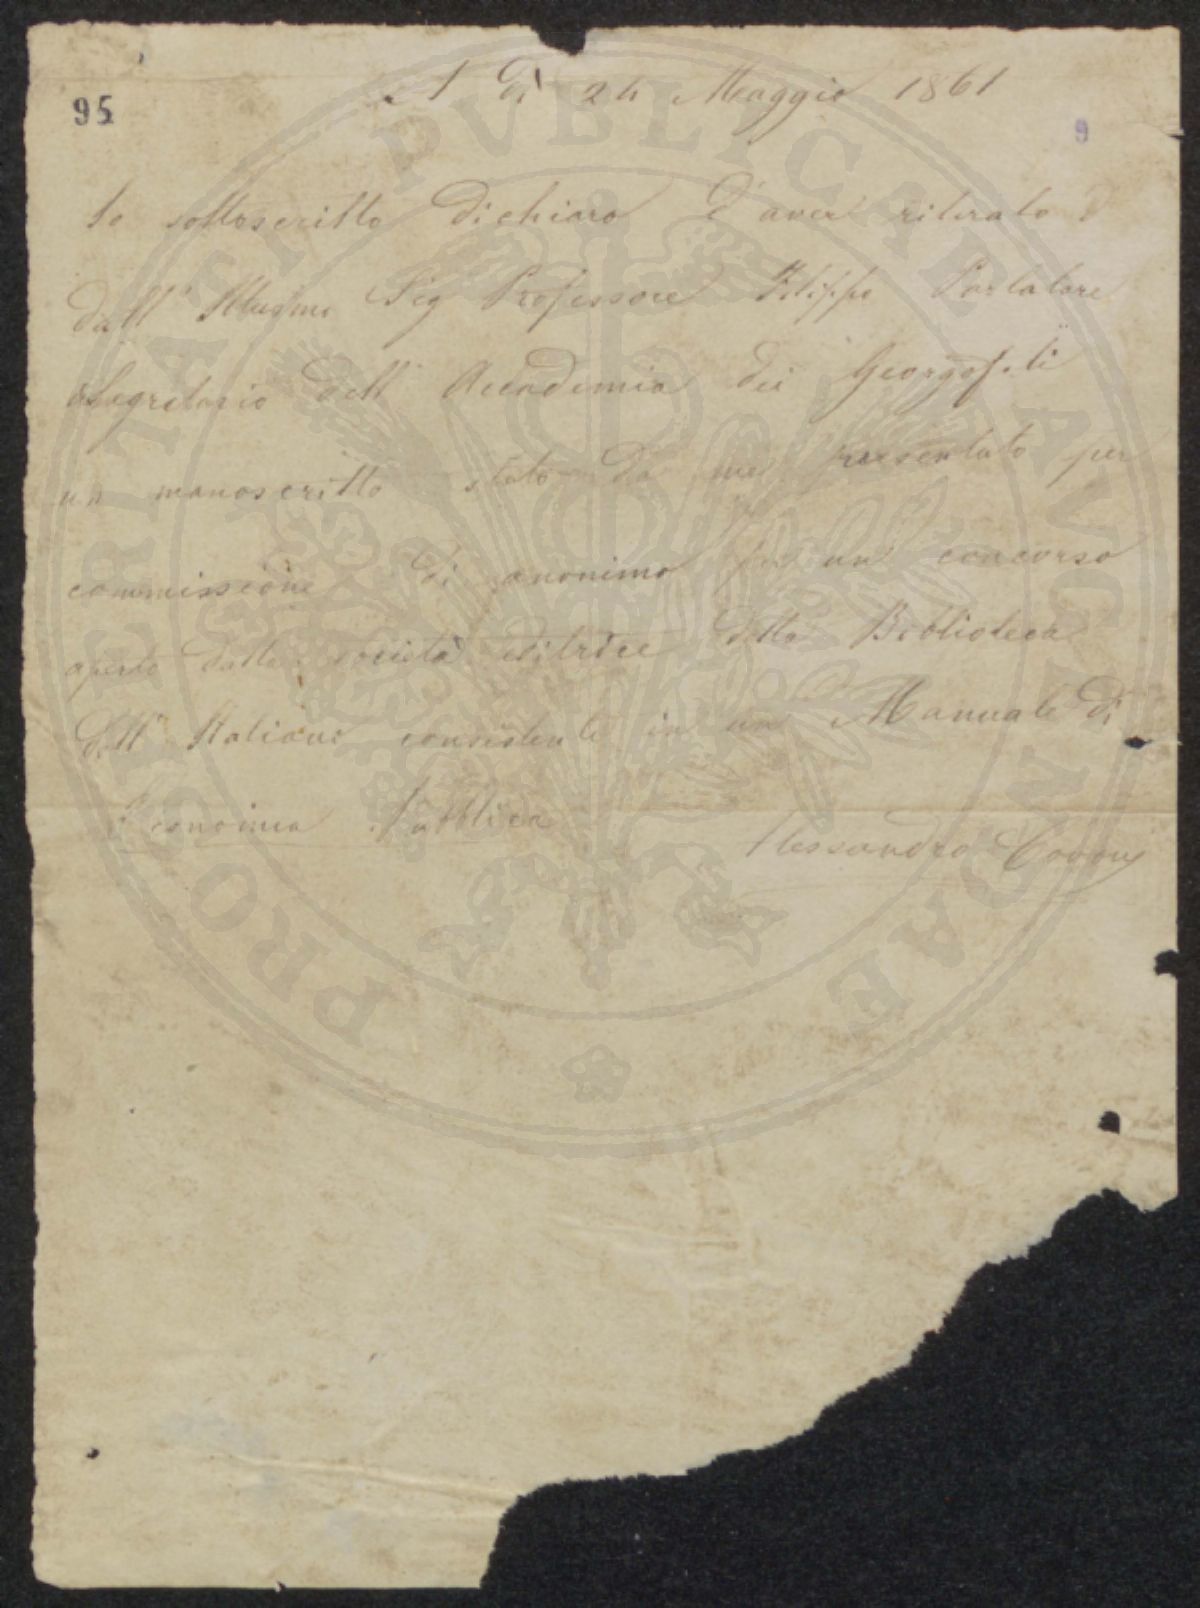 95
A Dì 24 Maggio 1861
9
Io sottoscritto Dichiaro D'aver ritirato
Dall' Illusmo Sig Professore Filippo Parlatore
Segretario Dell' Accademia Dei Georgofili
un manoscritto stato Da me presentato per
commissione Di anonimo per un concorso
aperto Dalla società editrice Della Biblioteca
Dell' Italiano consistente in un Manuale Di
Economia Pubblica
Alessandro
PROSPERITATI PVBLICAE AVGENDAE